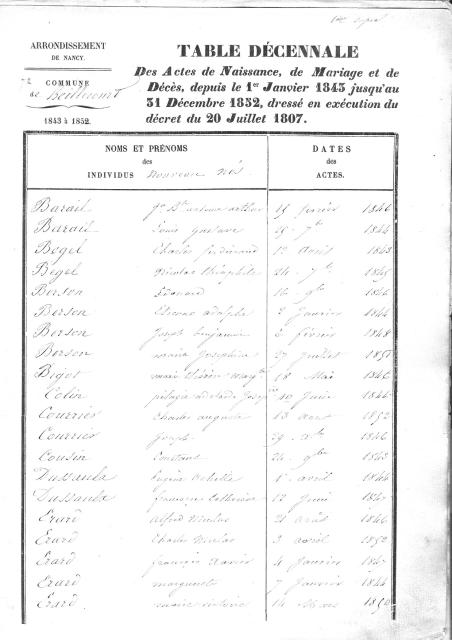 ARRONDISSEMENT
DE NANCY.
COMMUNE
de
1843 à 1852.
TABLE DÉCENNALE
Des Actes de Naissance, de Mariage et de
Décès, depuis le 1er Janvier 1843 jusqu'au
31 Décembre 1852, dressé en exécution du
décret du 20 Juillet 1807.
NOMS ET PRÉNOMS
des
INDIVIDUS nouveau nés
DATES
des
ACTES.
Barail 15 février 1846
Barail Louis Gustave 1844
Begel Charles ferdinand 1er avril 1843
Begel Nicolas théophile 24 7bre 1845
Berson Edouard 16 9bre 1846
Berson Etienne adolphe 2 janvier 1844
Berson Joseph benjamin 2 février 1848
Berson maria Josephine 27 juillet 1851
Bigot 18 Mai 1846
Colin 10 juin 1846
Courrier Charles auguste 13 aout 1852
Courrier Joseph 29 1846
Cousin Constant 24 9bre 1843
Dussaula Eugène Achille 1er avril 1844
Dussaula françoise Catherine 12 juin 1847
Erard alfred Nicolas 21 août 1846
Erard Charles Nicolas 3 avril 1852
Erard françois Xavier 4 janvier 1847
Erard marguerite 7 janvier 1844
Erard marie 14 Mars